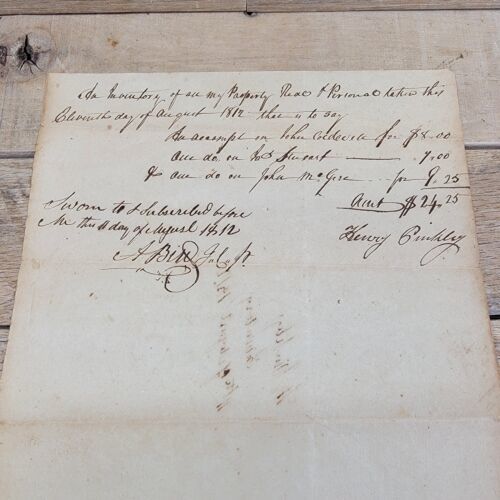 An Inventory of all my Property Real & Personal taken this
Eleventh day of August 1812 that is to say
An accompt on John for $8.00
one do on Stewart 7.00
& one do on John McGee for 9.25
Amt $24.25
Sworn to & Subscribed before
Me this 11 day of August 1812
Henry Pinkley
A Bill